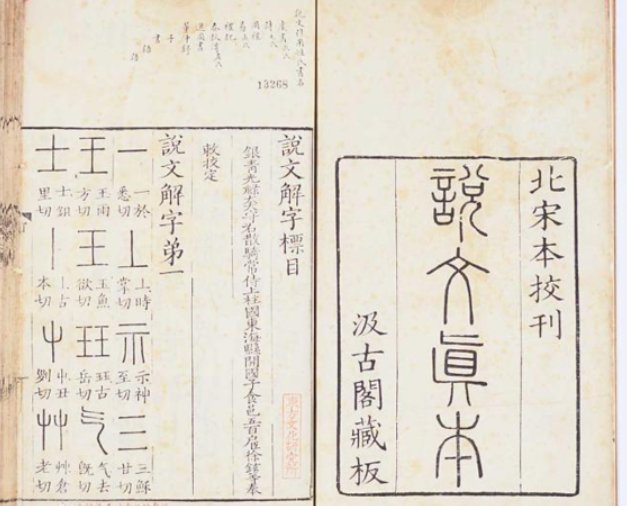 北宋本挍刊
說文眞本
汲古閣藏板
13268
說文解字標目
銀青光祿大夫守右散騎常侍上柱國東海縣開國子食邑五百戶臣徐鉉等奉
敕挍定
說文解字弟一
一 一於悉切 丄 上時掌切 示 示神至切 三 三穌甘切
王 王雨方切 玉 玉魚欲切 玨 玨古岳切 气 气去旣切
士 士鉏里切 丨 丨古本切 屮 屮丑切 艸 艸倉老切